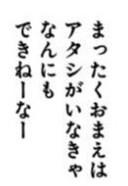 まったくおまえは
アタシがいなきゃ
なんにも
できねーなー